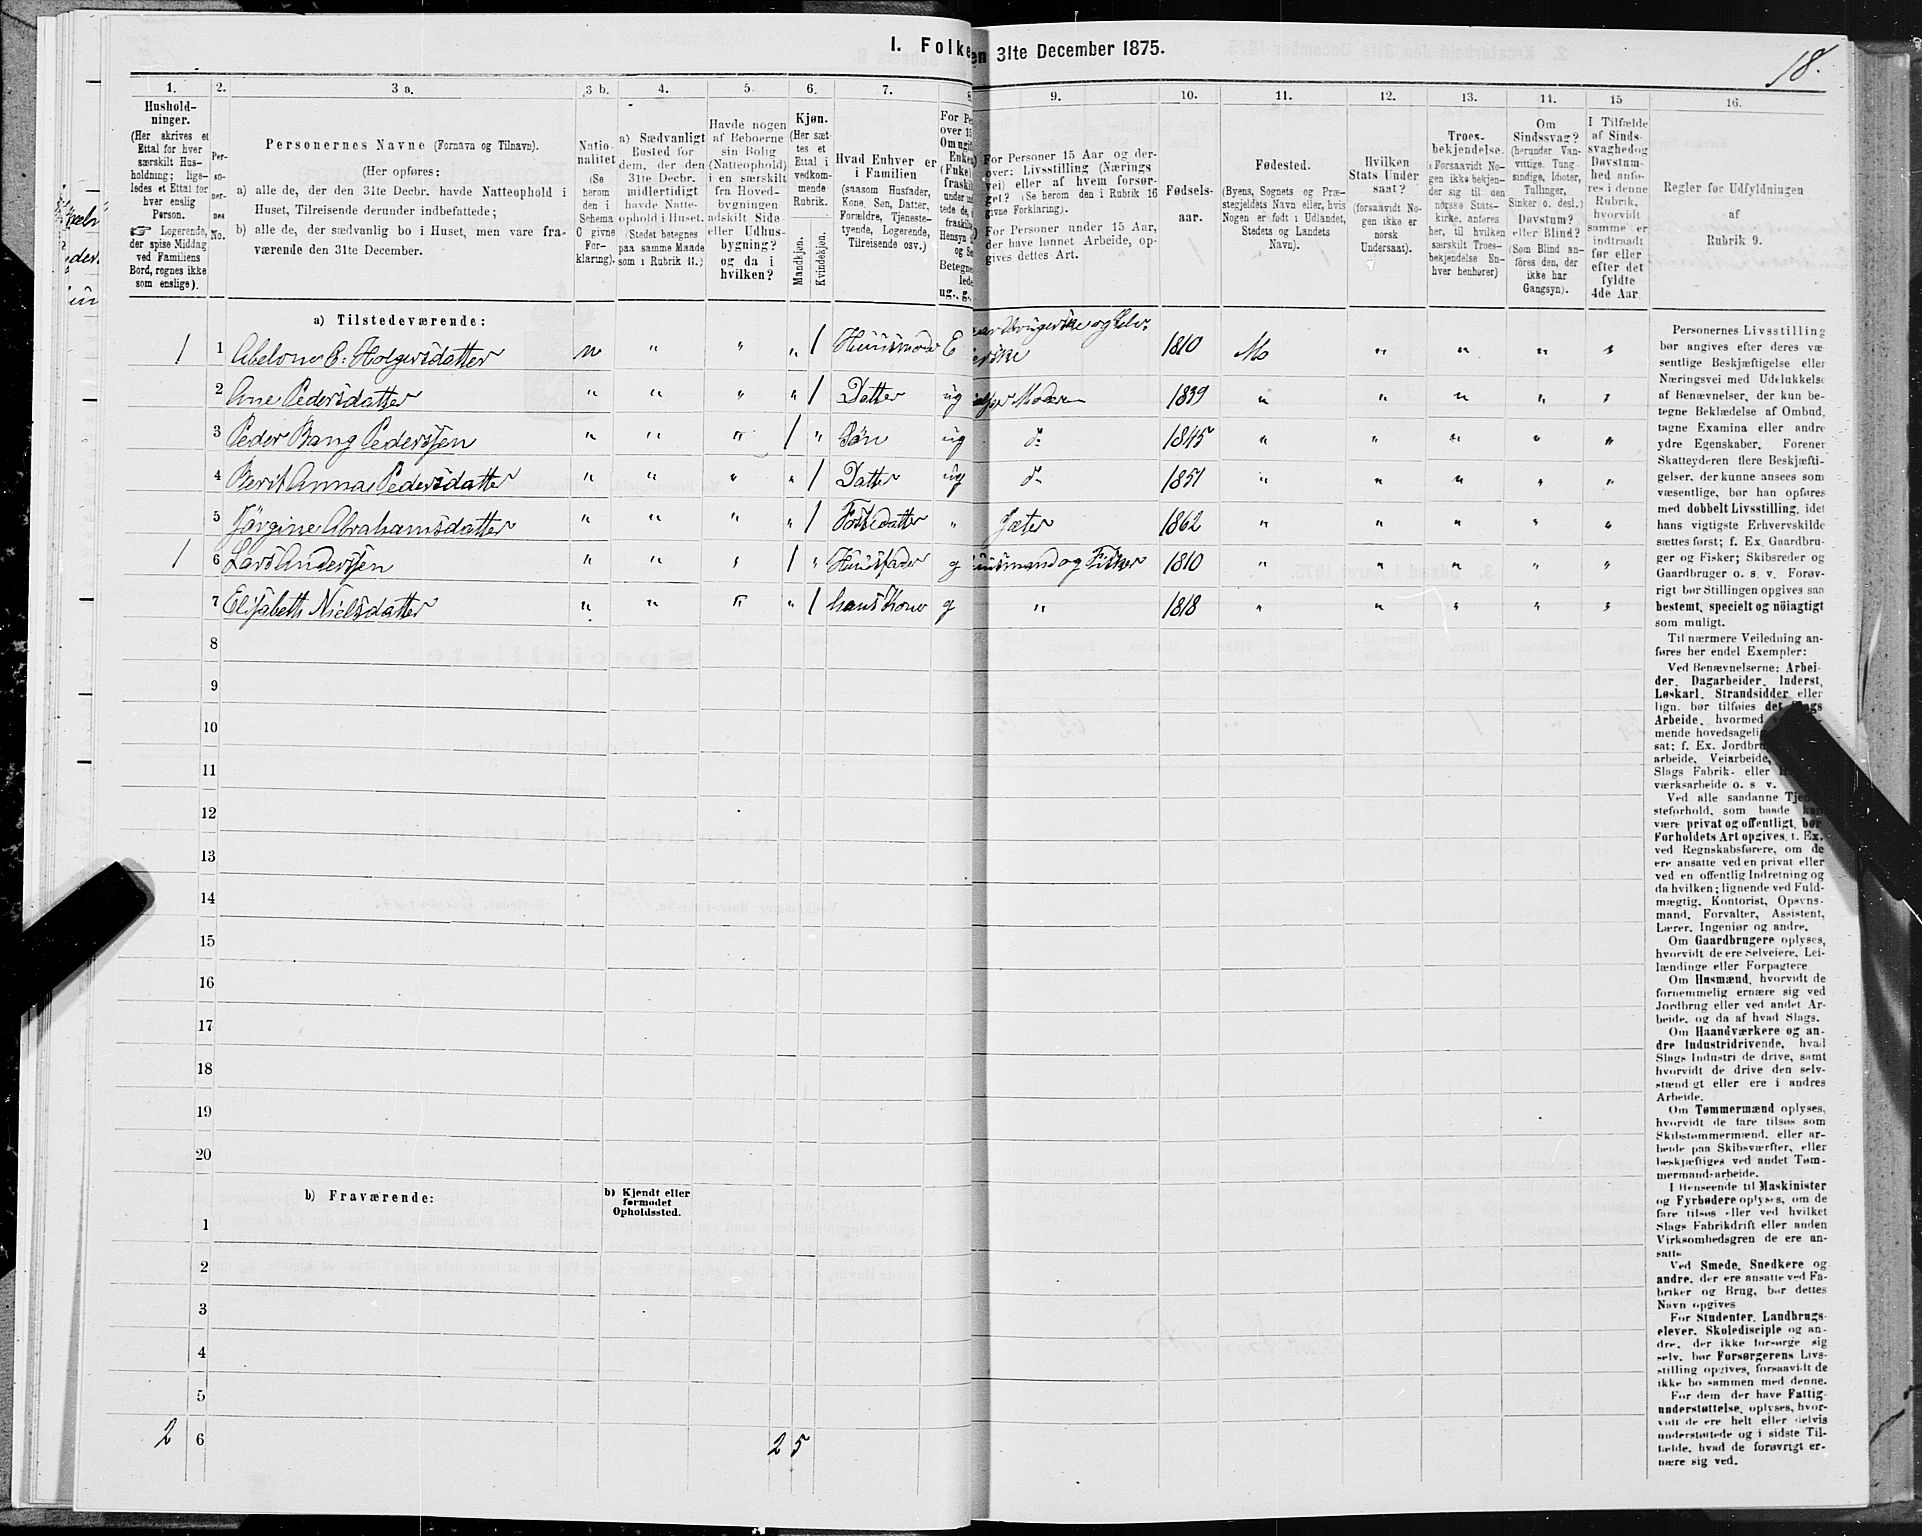 I. Folke
en 31te December 1875.
18.
1.
Hushold-
ninger.
(Her skrives et
Ettal for hver
særskilt Hus-
holdning; lige-
ledes et Ettal for
hver enslig
Person.
☞ Logerende,
der spise Middag
ved Familiens
Bord, regnes ikke
som enslige).
2.
Per-
so-
ner-
nes
No.
3 a.
Personernes Navne (Fornavn og Tilnavn).
(Her opføres:
a) alle de, der den 31te Decbr. havde Natteophold i
Huset, Tilreisende derunder indbefattede;
b) alle de, der sædvanlig bo i Huset, men vare fra-
værende den 31te December.
3 b.
Natio-
nalitet
(Se
herom
den i
Schema
C givne
For-
klaring).
4.
a) Sædvanligt
Bosted for
dem, der den
31te Decbr.
midlertidigt
havde Natte-
ophold i Huset.
(Stedet betegnes
paa samme Maade
som i Rubrik 11.)
5.
Havde nogen
af Beboerne
sin Bolig
(Natteophold)
i en særskilt
fra Hoved-
bygningen
adskilt Side
eller Udhus-
bygning?
og da i
hvilken?
6.
Kjøn.
(Her sæt-
tes et
Ettal i
vedkom-
mende
Rubrik.
Mandkjøn.
Kvindekjøn.
7.
Hvad Enhver er
i Familien
(saasom Husfader,
Kone, Søn, Datter,
Forældre, Tjeneste-
tyende, Logerende,
Tilreisende osv.)
8
For Pe
over 15
Om ugif
Enken
(Enke)
fraskil
under ind
tede de,
fraskilte
Hensyn
og Se
Betegne
lede
ug., g.,
9.
For Personer 15 Aar og der-
over: Livsstilling (Nærings
vei) eller af hvem forsør-
get? (Se herom den i Rubrik 16
givne Forklaring).
For Personer under 15 Aar,
der have lønnet Arbeide, op-
gives dettes Art.
10.
Fødsels-
aar.
11.
Fødested.
(Byens, Sognets og Præ-
stegjeldets Navn eller, hvis
Nogen er født i Udlandet,
Stedets og Landets
Navn).
12.
Hvilken
Stats Under
saat?
(forsaavidt No-
gen ikke er
norsk
Undersaat).
13.
Troes-
bekjendelse.
(Forsaavidt No-
gen ikke bekjen-
der sig til den
norske Stats-
kirke, anføres
her, til hvilken
særskilt Troes-
bekjendelse En-
hver henhører)
14.
Om
Sindssvag?
(herunder Van-
vittige, Tung-
sindige, Idioter,
Tullinger,
Sinker o. desl.)
Døvstum?
eller Blind?
(Som Blind an-
føres den, der
ikke har
Gangsyn).
15
I Tilfælde
af Sinds-
svaghed og
Døvstum-
hed anfø-
res i denne
Rubrik,
hvorvidt
samme er
indtraadt
før eller
efter det
fyldte
4de Aar.
16.
Regler for Udfyldningen
af
Rubrik 9.
a) Tilstedeværende:
1 1 Abelone E: Holgersdatter n " " " 1 Huusmoder E 1810 Mo " " " "
2 Ane Pedersdatter " " " " 1 Datter ug 1839 " " " " "
3 Peder Bang Pederssen " " " 1 " Søn ug d- 1845 " " " " "
4 Berit Anna Pedersdatter " " " " 1 Datter ug d- 1851 " " " " "
5 Jørgine Abrahamsdatter " " " " 1 Fostedatter " Jæter 1862 " " " " "
1 6 Lars Anderssen " " " 1 " Huusfader g uusmand og Fisker 1810 " " " " "
7 Elisabeth Nielsdatter " " " " 1 hans Kone g " 1818 " " " " "
8
9
10
11
12
13
14
15
16
17
18
19
20
b) Fraværende:
b) Kjendt eller
formodet
Opholdssted.
1
2
3
4
5
2 6 2 5
Personernes Livsstilling
bør angives efter deres væ
sentlige Beskjæftigelse eller
Næringsvei med Udelukkelse
af Benævnelser, der kun be-
tegne Beklædelse af Ombud,
tagne Examina eller andre
ydre Egenskaber. Forener
Skatteyderen flere Beskjæfti-
gelser, der kunne ansees som
væsentlige, bør han opføres
med dobbelt Livsstilling, idet
hans vigtigste Erhvervskilde
sættes først; f. Ex. Gaardbru-
ger og Fisker; Skibsreder og
Gaardbruger o. s. v. Forøv-
rigt bør Stillingen opgives saa
bestemt, specielt og nöiagtigt
som muligt.
Til nærmere Veiledning an-
føres her endel Exempler:
Ved Benævnelserne: Arbei-
der, Dagarbeider, Inderst,
Løskarl, Strandsidder eller
lign. bør tilføies det Slags
Arbeide, hvormed
mende hovedsagelig
sat; f. Ex. Jordbru
arbeide, Veiarbeide,
Slags Fabrik- eller
værksarbeide o. s v.
Ved alle saadanne Tjene
steforhold, som baade kan
være privat og offentligt, bør
Forholdets Art opgives, t. Ex.
ved Regnskabsførere, om de
ere ansatte ved en privat eller
ved en offentlig Indretning og
da hvilken; lignende ved Fuld-
mægtig, Kontorist, Opsyns-
mand, Forvalter, Assistent,
Lærer, Ingeniør og andre.
Om Gaardbrugere oplyses,
hvorvidt de ere Selveiere, Lei-
lændinge eller Forpagtere
Om Husmænd, hvorvidt de
fornemmelig ernære sig ved
Jordbrug eller ved andet Ar-
beide, og da af hvad Slags.
Om Haandværkere og an-
dre Industridrivende, hvad
Slags Industri de drive, samt
hvorvidt de drive den selv-
stændigt eller ere i andres
Arbeide.
Om Tømmermænd oplyses,
hvorvidt de fare tilsøs som
Skibstømmermænd, eller ar-
beide paa Skibsværfter, eller
beskjæftiges ved andet Tøm-
mermand-arbeide.
I Henseende til Maskinister
og Fyrbødere oplyses, om de
fare tilsøs eller ved hvilket
Slags Fabrikdrift eller anden
Virksomhedsgren de ere an-
satte
Ved Smede, Snedkere og
andre, der ere ansatte ved Fa-
briker og Brug, bør dettes
Navn opgives
For Studenter, Landbrugs-
elever, Skoledisciple og an-
dre, der ikke forsørge sig
selv, bør Forsørgerens Livs-
stilling opgives, forsaavidt de
ikke bo sammen med denne.
For dem der have Fattig-
understøttelse, oplyses, hvor-
vidt de ere helt eller delvis
understøttede og i sidste Til-
fælde, hvad de forøvrigt er-
nære sig ved.